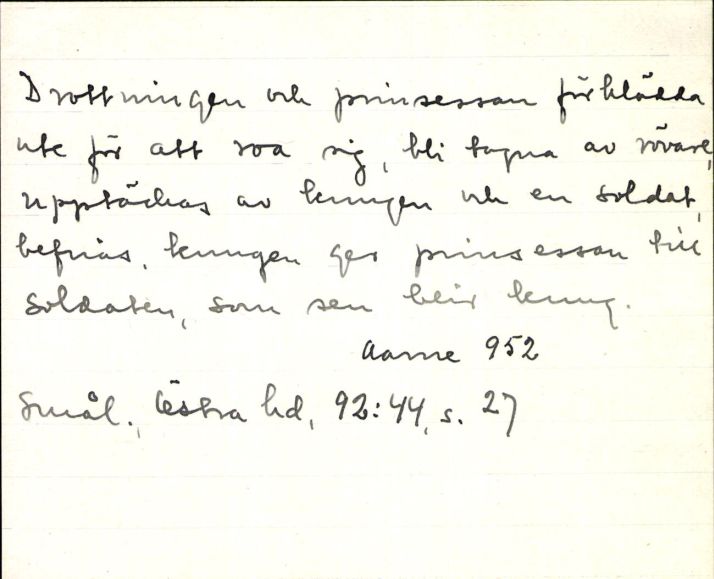 Drottningen och prinsessan förklädda
ute för att roa sig, bli tagna av rövare,
upptäckas av kungen och en soldat,
befrias, kungen ger prinsessan till
soldaten, som sen blir kung.
Aarne 952
Smål., Östra hd, 92:44, s. 27